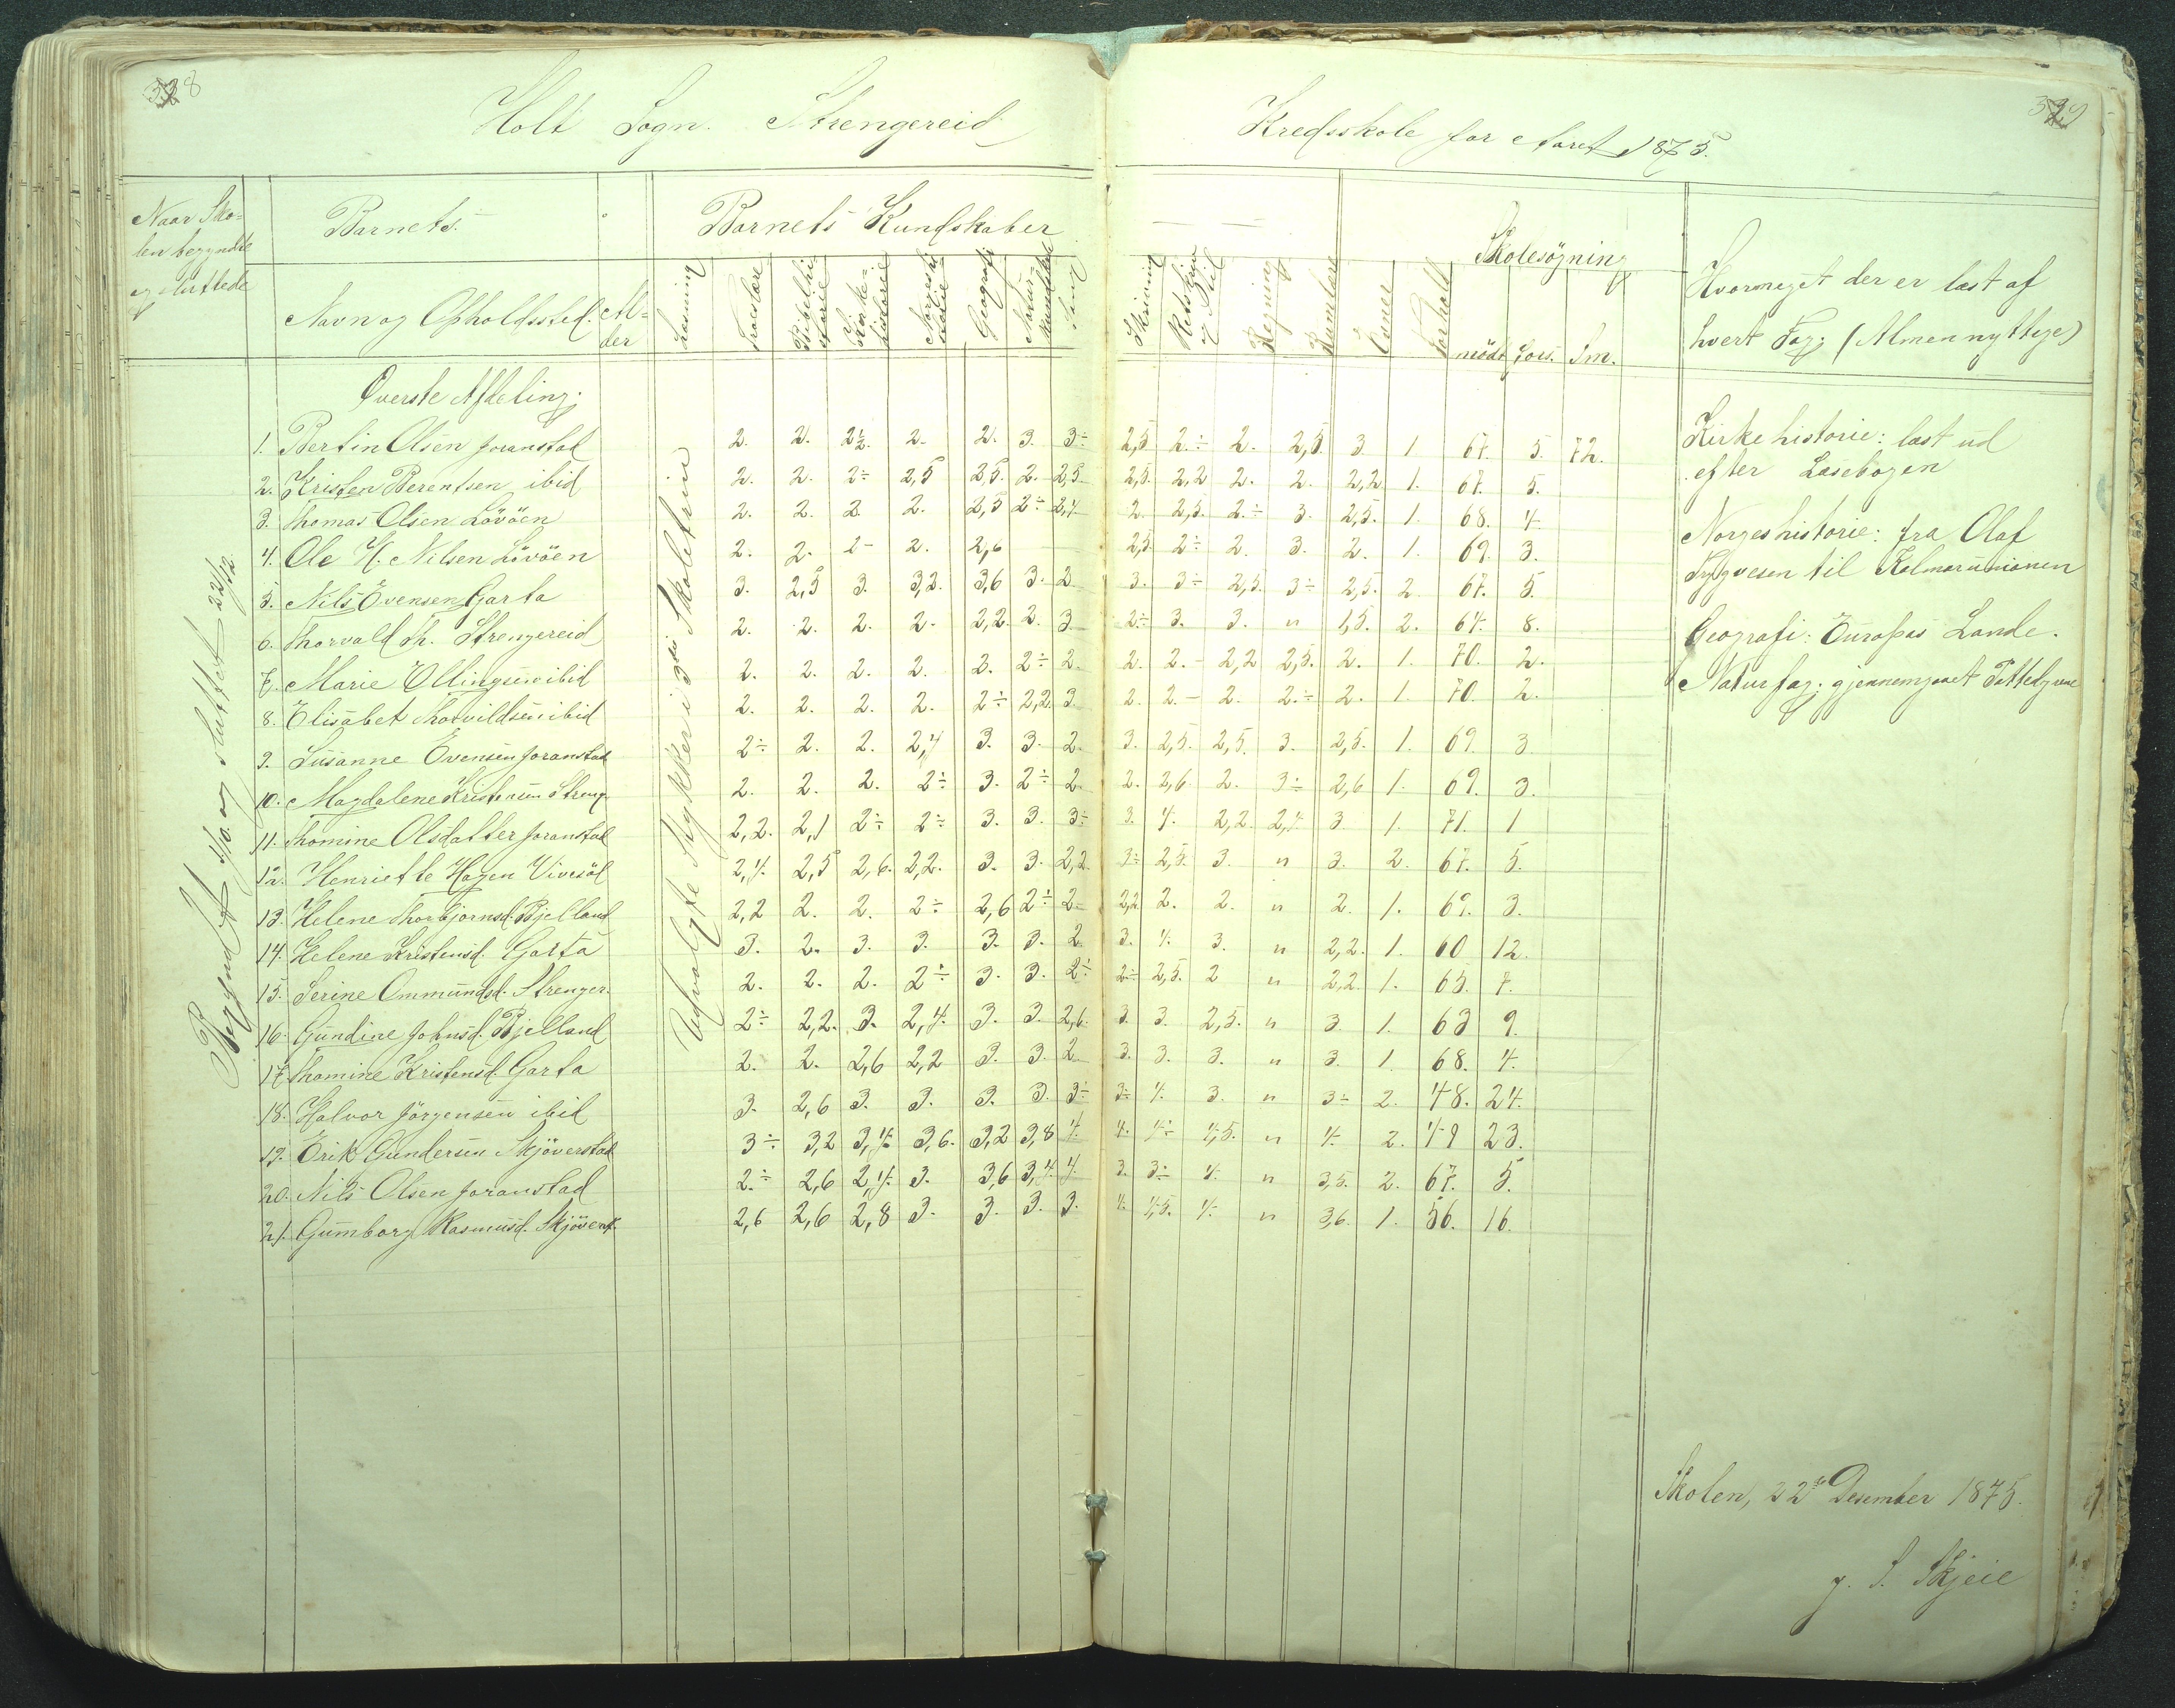 338
Holt Sogn. Strengereid
Naar Sko-
len begyndte
og sluttede
Barnets.
Navn og Opholdssted.
Al-
der
Barnets Kundskaber
Læsning
Troeslære
Bibelhi-
storie
Kirke-
historie
Norceshi-
storie
Geografi
Natur-
kundskab
Sang
Begyndt 4/10 og sluttet 22/12.
Udvalgte Stykker i 3die Skoletrin
Överste Afdeling.
1. Bertin Olsen Joranstad 2. 2. 2½. 2. 2. 3. 3÷
2. Kristen Berentsen ibid 2. 2. 2÷ 2,5 2,5. 2. 2,5
3. Thomas Olsen Lövöen 2. 2. 2 2. 2,5 2÷ 2,4
4. Ole H. Nilsen Lövöen 2. 2. 2- 2. 2,6
5. Nils Evensen Garta 3. 2,5 3. 3,2. 3,6 3. 2
6. Thorvald Th. Strengereid 2. 2. 2. 2. 2,2. 2. 3
7. Marie Ellingsen ibid 2. 2. 2. 2. 2. 2÷ 2.
8. Elisabet Thorvildsen ibid 2. 2. 2. 2. 2÷ 2,2. 3
9. Susanne Evensen Joranstad 2÷ 2. 2. 2,4 3. 3. 2.
10. Magdalene Kristensen Streng. 2. 2. 2. 2÷ 3. 2÷ 2.
11. Thomine Olsdatter Joranstad 2,2. 2,1 2÷ 2÷ 3. 3. 3÷
12. Henriette Hagen Vivesöl 2,4. 2,5 2,6. 2,2. 3. 3. 2,2.
13. Helene Thorbjørnsd. Bjelland 2,2 2. 2. 2÷ 2,6 2÷ 2
14. Helene Kristensd. Garta 3. 2. 3. 3. 3. 3. 2
15. Serine Ommundsd. Strenger. 2. 2. 2. 2÷ 3. 3. 2÷
16. Gundine Johnsd. Bjelland 2÷ 2,2. 3. 2,4. 3. 3. 2,6.
17. Thomine Kristensd. Garta 2. 2. 2,6 2,2 3. 3. 2
18. Halvor Jörgensen ibid 3. 2,6 3. 3. 3. 3. 3÷
19. Erik Gundersen Skjöverstad 3÷ 3,2 3,4. 3,6. 3,2 3,8 4.
20. Nils Olsen Joranstad 2÷ 2,6 2,4. 3. 3,6 3,4. 4.
21. Gumborg Rasmusd. Skjöverst. 2,6 2,6 2,8 3. 3. 3. 3.
Kredsskole for Aaret 1875.
Skrivning
Retskrivn
og Stil
Regning
Rumlære
Evner
Forhold
Skolesögning
mödt fors. Sm.
Hvormeget der er læst af
hvert Fag. (Almennyttige)
2,5 2.÷ 2. 2,5. 3 1. 67. 5. 72.
2,5. 2,2 2. 2. 2,2 1. 67. 5.
2. 2,5. 2.÷ 3. 2,5. 1. 68. 4.
2,5 2÷ 2. 3. 2. 1. 69. 3.
3. 3÷ 2,5. 3÷ 2,5. 2. 67. 5.
2÷ 3. 3. " 1,5. 2. 64. 8.
2. 2.- 2,2 2,5. 2. 1. 70. 2.
2. 2- 2. 2.÷ 2. 1. 70. 2.
3. 2,5. 2,5. 3. 2,5. 1. 69. 3
2. 2,6 2. 3÷ 2,6 1. 69. 3.
3. 4. 2,2. 2,4. 3 1. 71. 1
3÷ 2,5. 3. " 3. 2. 67. 5.
2,2. 2. 2. " 2. 1. 69. 3.
3. 4. 3. " 2,2. 1. 60 12.
2÷ 2,5. 2 " 2,2. 1. 65. 7.
3. 3. 2,5. " 3 1. 63 9.
3. 3. 3. " 3. 1. 68. 4.
3÷ 4. 3. " 3÷ 2. 48. 24.
4. 4÷ 4,5. " 4. 2. 49 23.
3. 3÷ 4. " 3,5. 2. 67. 5.
4. 4,5. 4. " 3,6. 1. 56. 16.
Kirkehistorie: læst ud
efter Læsebogen
Norgeshistorie: fra Olaf
Trygvesen til Kalmarunionen
Geografi: Europas Lande.
Naturfag: gjennemgaaet Pattedyrene
Skolen, 22de Desember 1875.
J. S. Skjeie